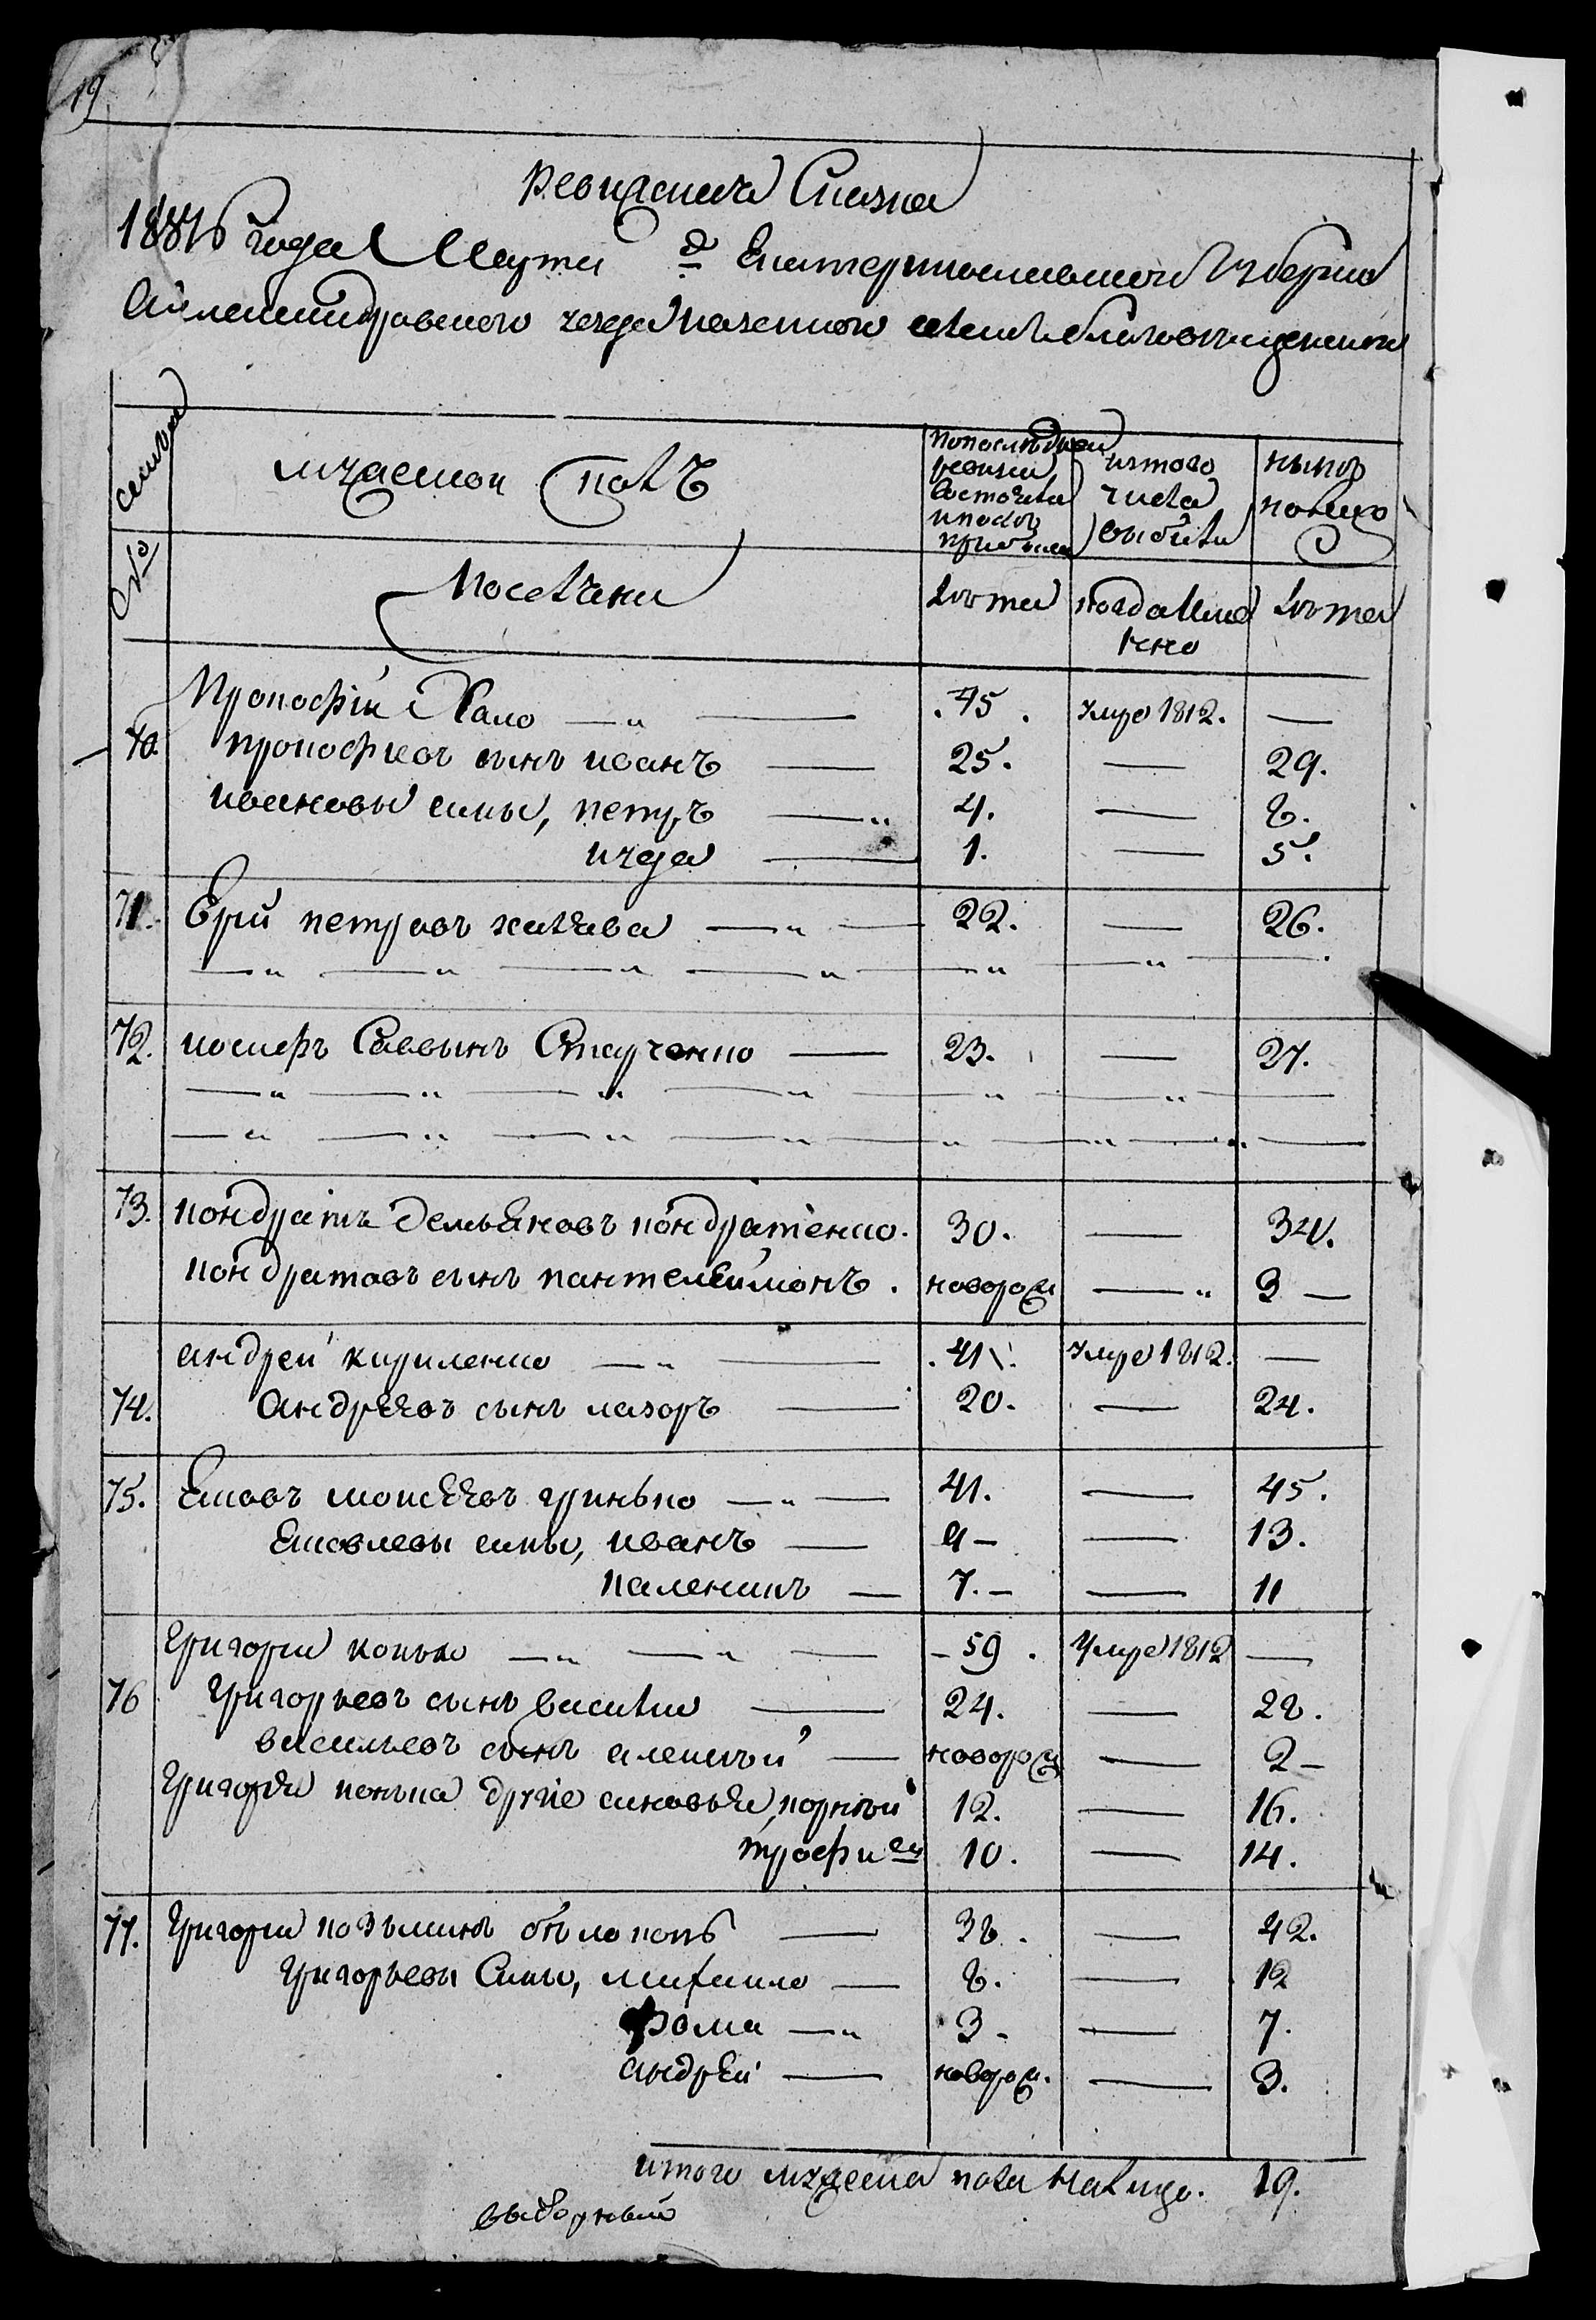 19
Ревизская Сказка
1816 года Марта д Екатеринославской Губерни
Александровского уезда казенной слободы благовещенской
№ семьи
мужеской полъ
по последней ревизии состояло и после прибыло
из того числа выбыло
ныне налицо
Поселяне
лета
когда именно
лета
Прокофій Хало — 45. умре 1812. —
70. прокофиевъ сынъ иванъ — 25. — 29.
ивановы сины, петръ — 4. — 8.
иуда — 1. — 5.
71. Ерій петровъ халява — 22. — 26.
72. иосифъ Саввынъ Старченко — 23. — 27.
73. кондратъ демьяновъ кондратенко. 30. — 34.
кондратовъ сынъ пантелеймонъ. новорож — 3 —
андрей кириленко — 41. умре 1812. —
74. андрѣевъ сынъ лазоръ — 20. — 24.
75. Яковъ моисѣевъ гринько — 41. — 45.
Яковлевы сины, иванъ — 9 — 13.
каленикъ — 7. — 11
григорій конько — 59. умре 1812 —
76 григорьевъ сынъ василий — 24. — 28.
васильевъ сынъ алексѣй — новорож — 2 —
григорія конька другіе синовья, корнѣй 12. — 16.
трофимъ 10. — 14.
77. григорій козьминъ бѣлоконь — 38. — 42.
григорьевы Сины, михаило — 8. — 12
фома — 3 — 7.
андрей — новорож. — 3.
итого мужеска пола налицо. 19.
выборный